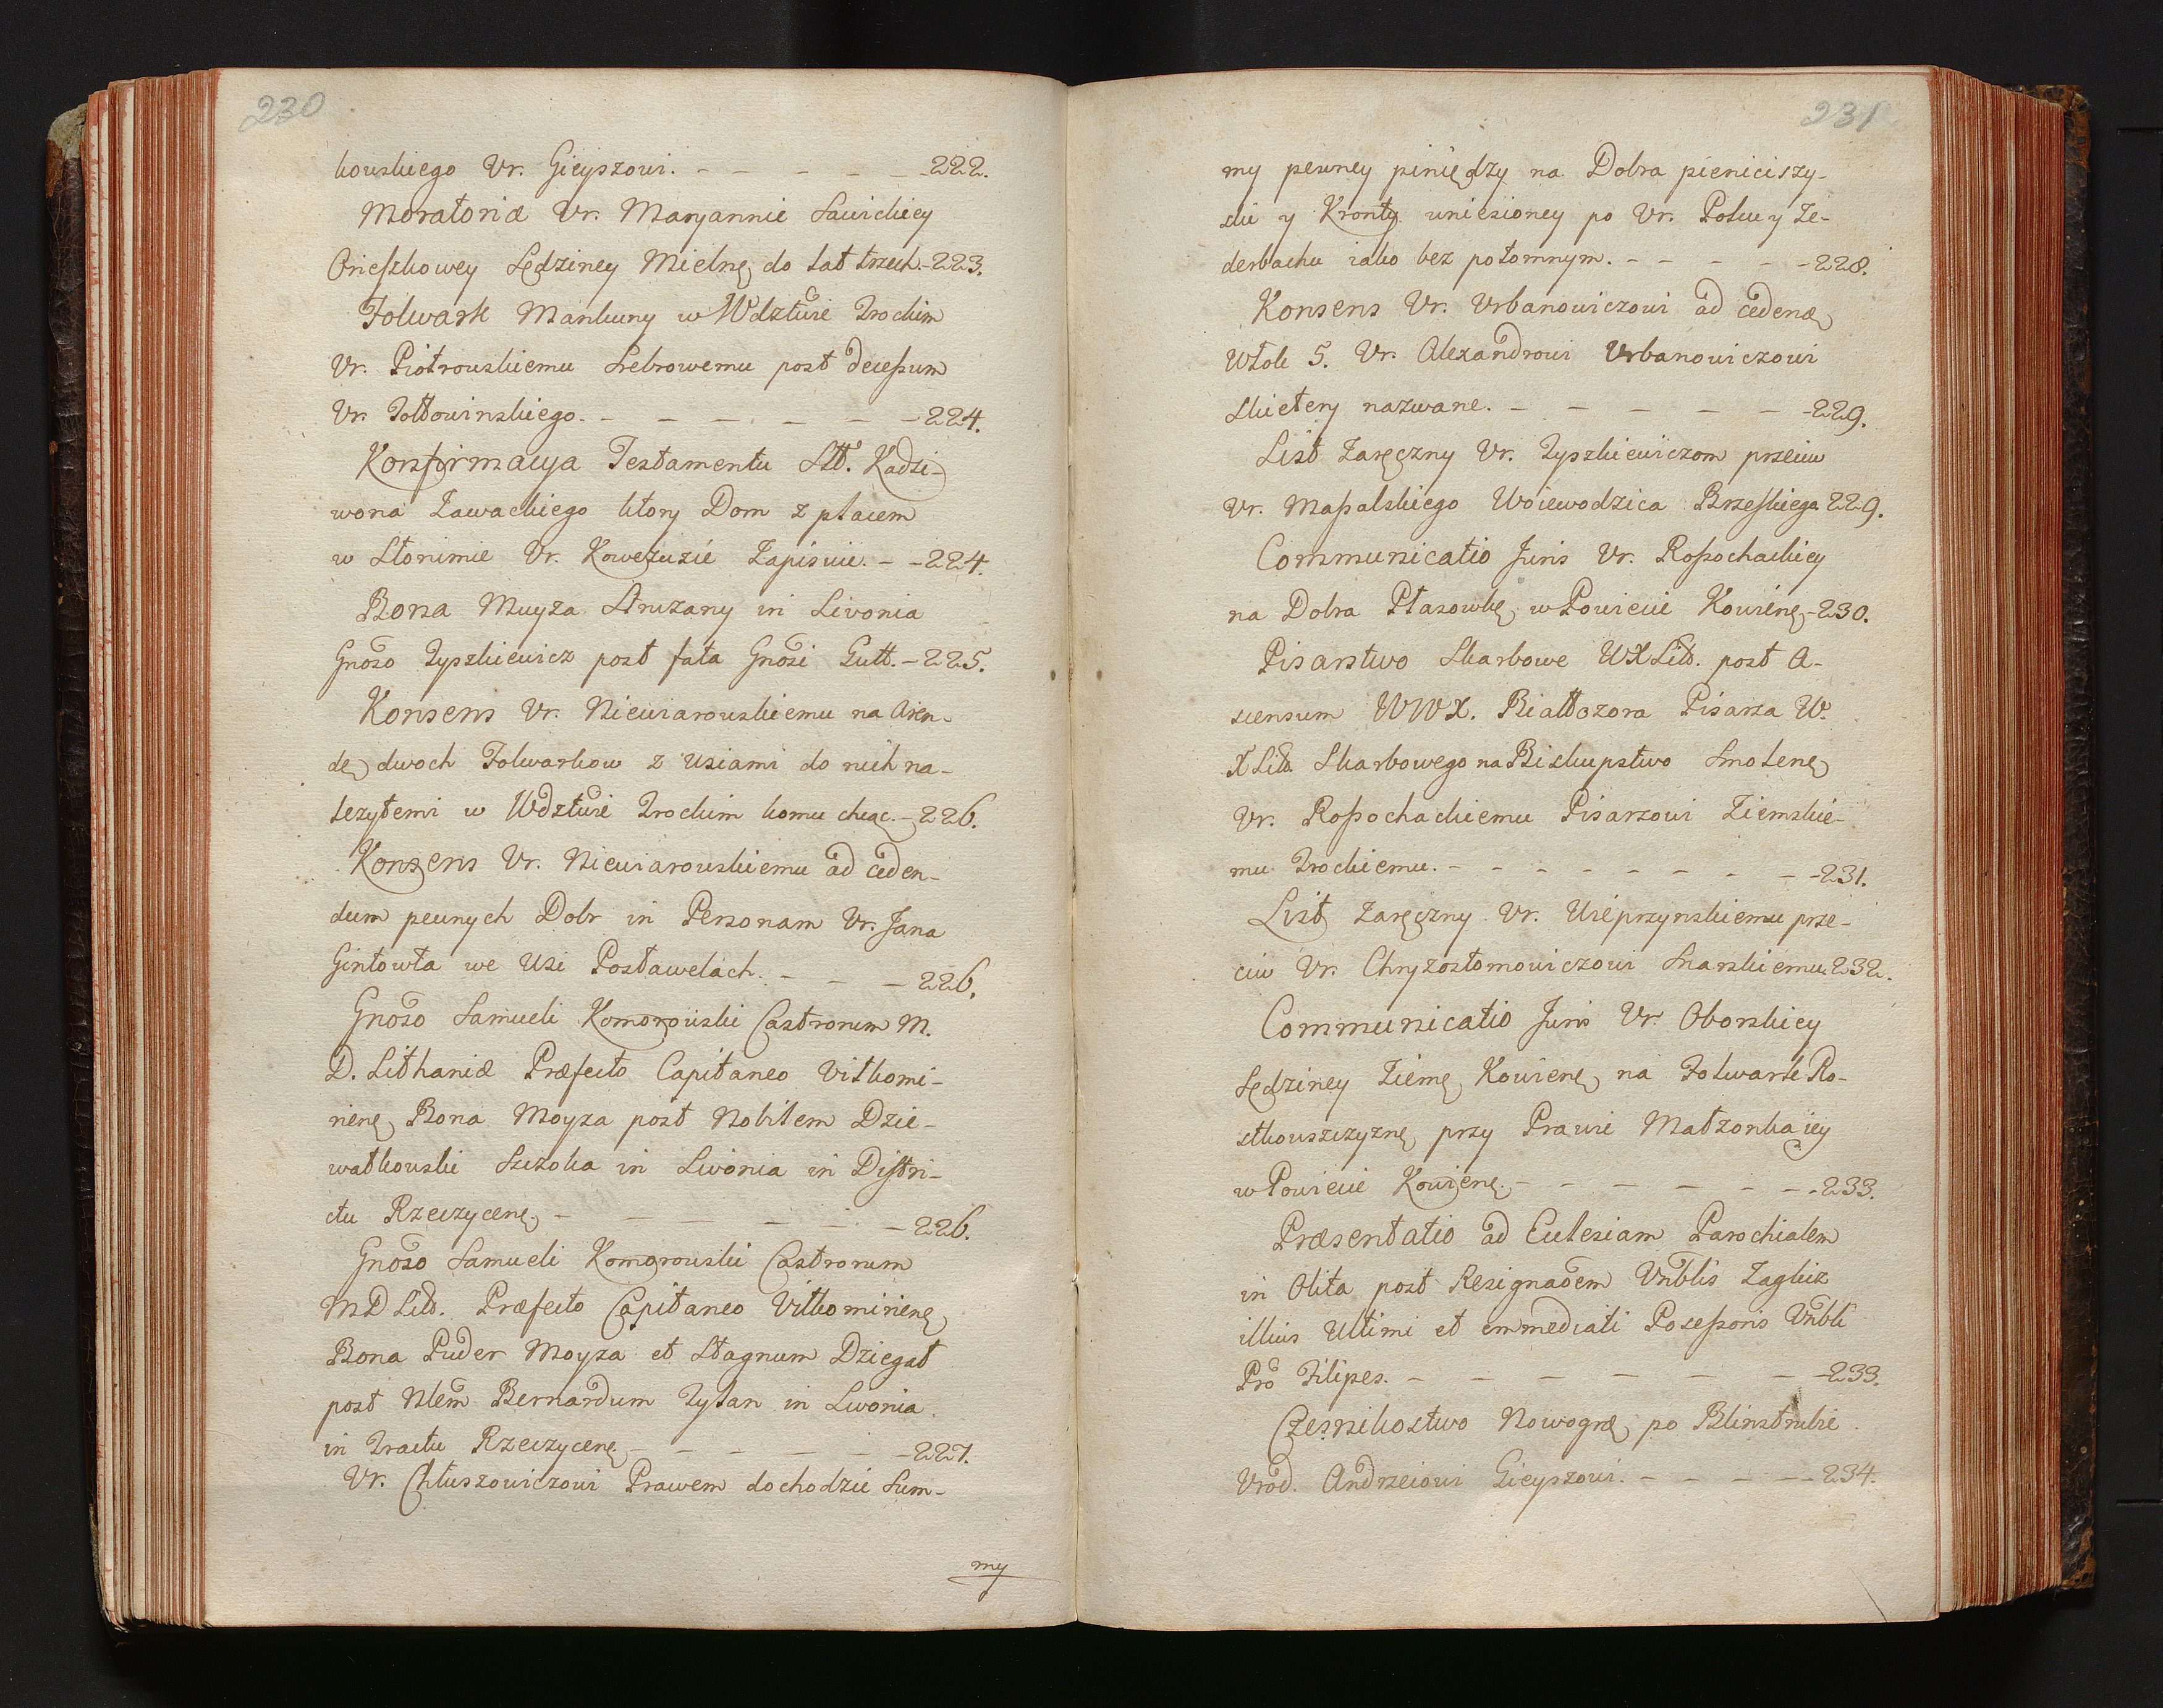 230
kowskiego Ur. Gieyszowi. – – – – – 222.
Moratoriæ Ur. Maryannie Sawickiey
Orieszkowey Sędziney Mielnę do lat trzech. – 223.
Folwark Mankuny w Wdztwie Trockim
Ur. Piotrowskiemu Srebrowemu post decessum
Ur. Zołtowinskiego. – – – – – – 224.
Konfirmacya Testamentu Stt. Kadzi-
wona Zawackiego ktory Dom z placem
w Słonimie Ur. Kowezuzie Zapisuie. – – 224.
Bona Muyza Struzany in Livonia
Gnoso Tyszkiewicz post fata Gnosi Gutt. – 225.
Konsens Ur. Niewiarowskiemu na Aren-
dę dwoch Folwarkow z wsiami do nich na-
lezytemi w Wdztwie Trockim komu chcąc. – 226.
Konsens Ur. Niewiarowskiemu ad ceden-
dum pewnych Dobr in Personam Ur. Jana
Gintowta we Wsi Postawelach. – – – 226.
Gnoso Samueli Komorowski Castrorum M.
D. Lithaniæ Præfecto Capitaneo Vilkomi-
rienę Bona Moyza post Nobilem Dzie-
wałkowski Szczoka in Livonia in Distri-
ctu Rzeczycenę – – – – – – 226.
Gnoso Samueli Komorowski Castrorum
M D Litt. Præfecto Capitaneo Vilkomirienę
Bona Puder Moyza et Stagnum Dziegał
post Nlem Bernardum Tylan in Livonia
in Tractu Rzeczycenę – – – – – 227.
Ur. Chłuszowiczowi Prawem dochodzic Sum-
my
231
my pewney piniędzy na Dobra pieniciszy-
skie y Kronty uniesioney po Ur. Polu y Ze-
derbachu iako bez potomnym. – – – – – 228.
Konsens Ur. Urbanowiczowi ad cedenę
Włok 5. Ur. Alexandrowi Urbanowiczowi
Skietery nazwane. – – – – – – 229.
List Zaręczny Ur. Tyszkiewiczom przeciw
Ur. Massalskiego Woiewodzica Brzeskiego 229.
Communicatio Juris Ur. Rossochackiey
na Dobra Ptasowkę w Powiecie Kowienę – 230.
Pisarstwo Skarbowe WXLitt. post A-
scensum WWX. Białłozora Pisarza W.
X Litt. Skarbowego na Biskupstwo Smolenę
Ur. Rossochackiemu Pisarzowi Ziemskie-
mu Trockiemu. – – – – – – – – 231.
List zaręczny Ur. Wieprzynskiemu prze-
ciw Ur. Chryzostomowiczowi Snarskiemu. 232.
Communicatio Juris Ur. Oborskiey
Sędziney Ziemę Kowienę na Folwark Ro-
stkowszczyznę przy Prawie Małzonka iey
w Powiecie Kowienę. – – – – – – – 233.
Præsentatio ad Eclesiam Parochialem
in Olita post Resignaoem Vnblis Zagluz
illius Ultimi et emmediati Posessoris Vnbli
Pro Filipes. – – – – – – – 233.
Czesnikostwo Nowogrę po Blinstrubie
Urod. Andrzeiowi Gieyszowi. – – – – – 234.